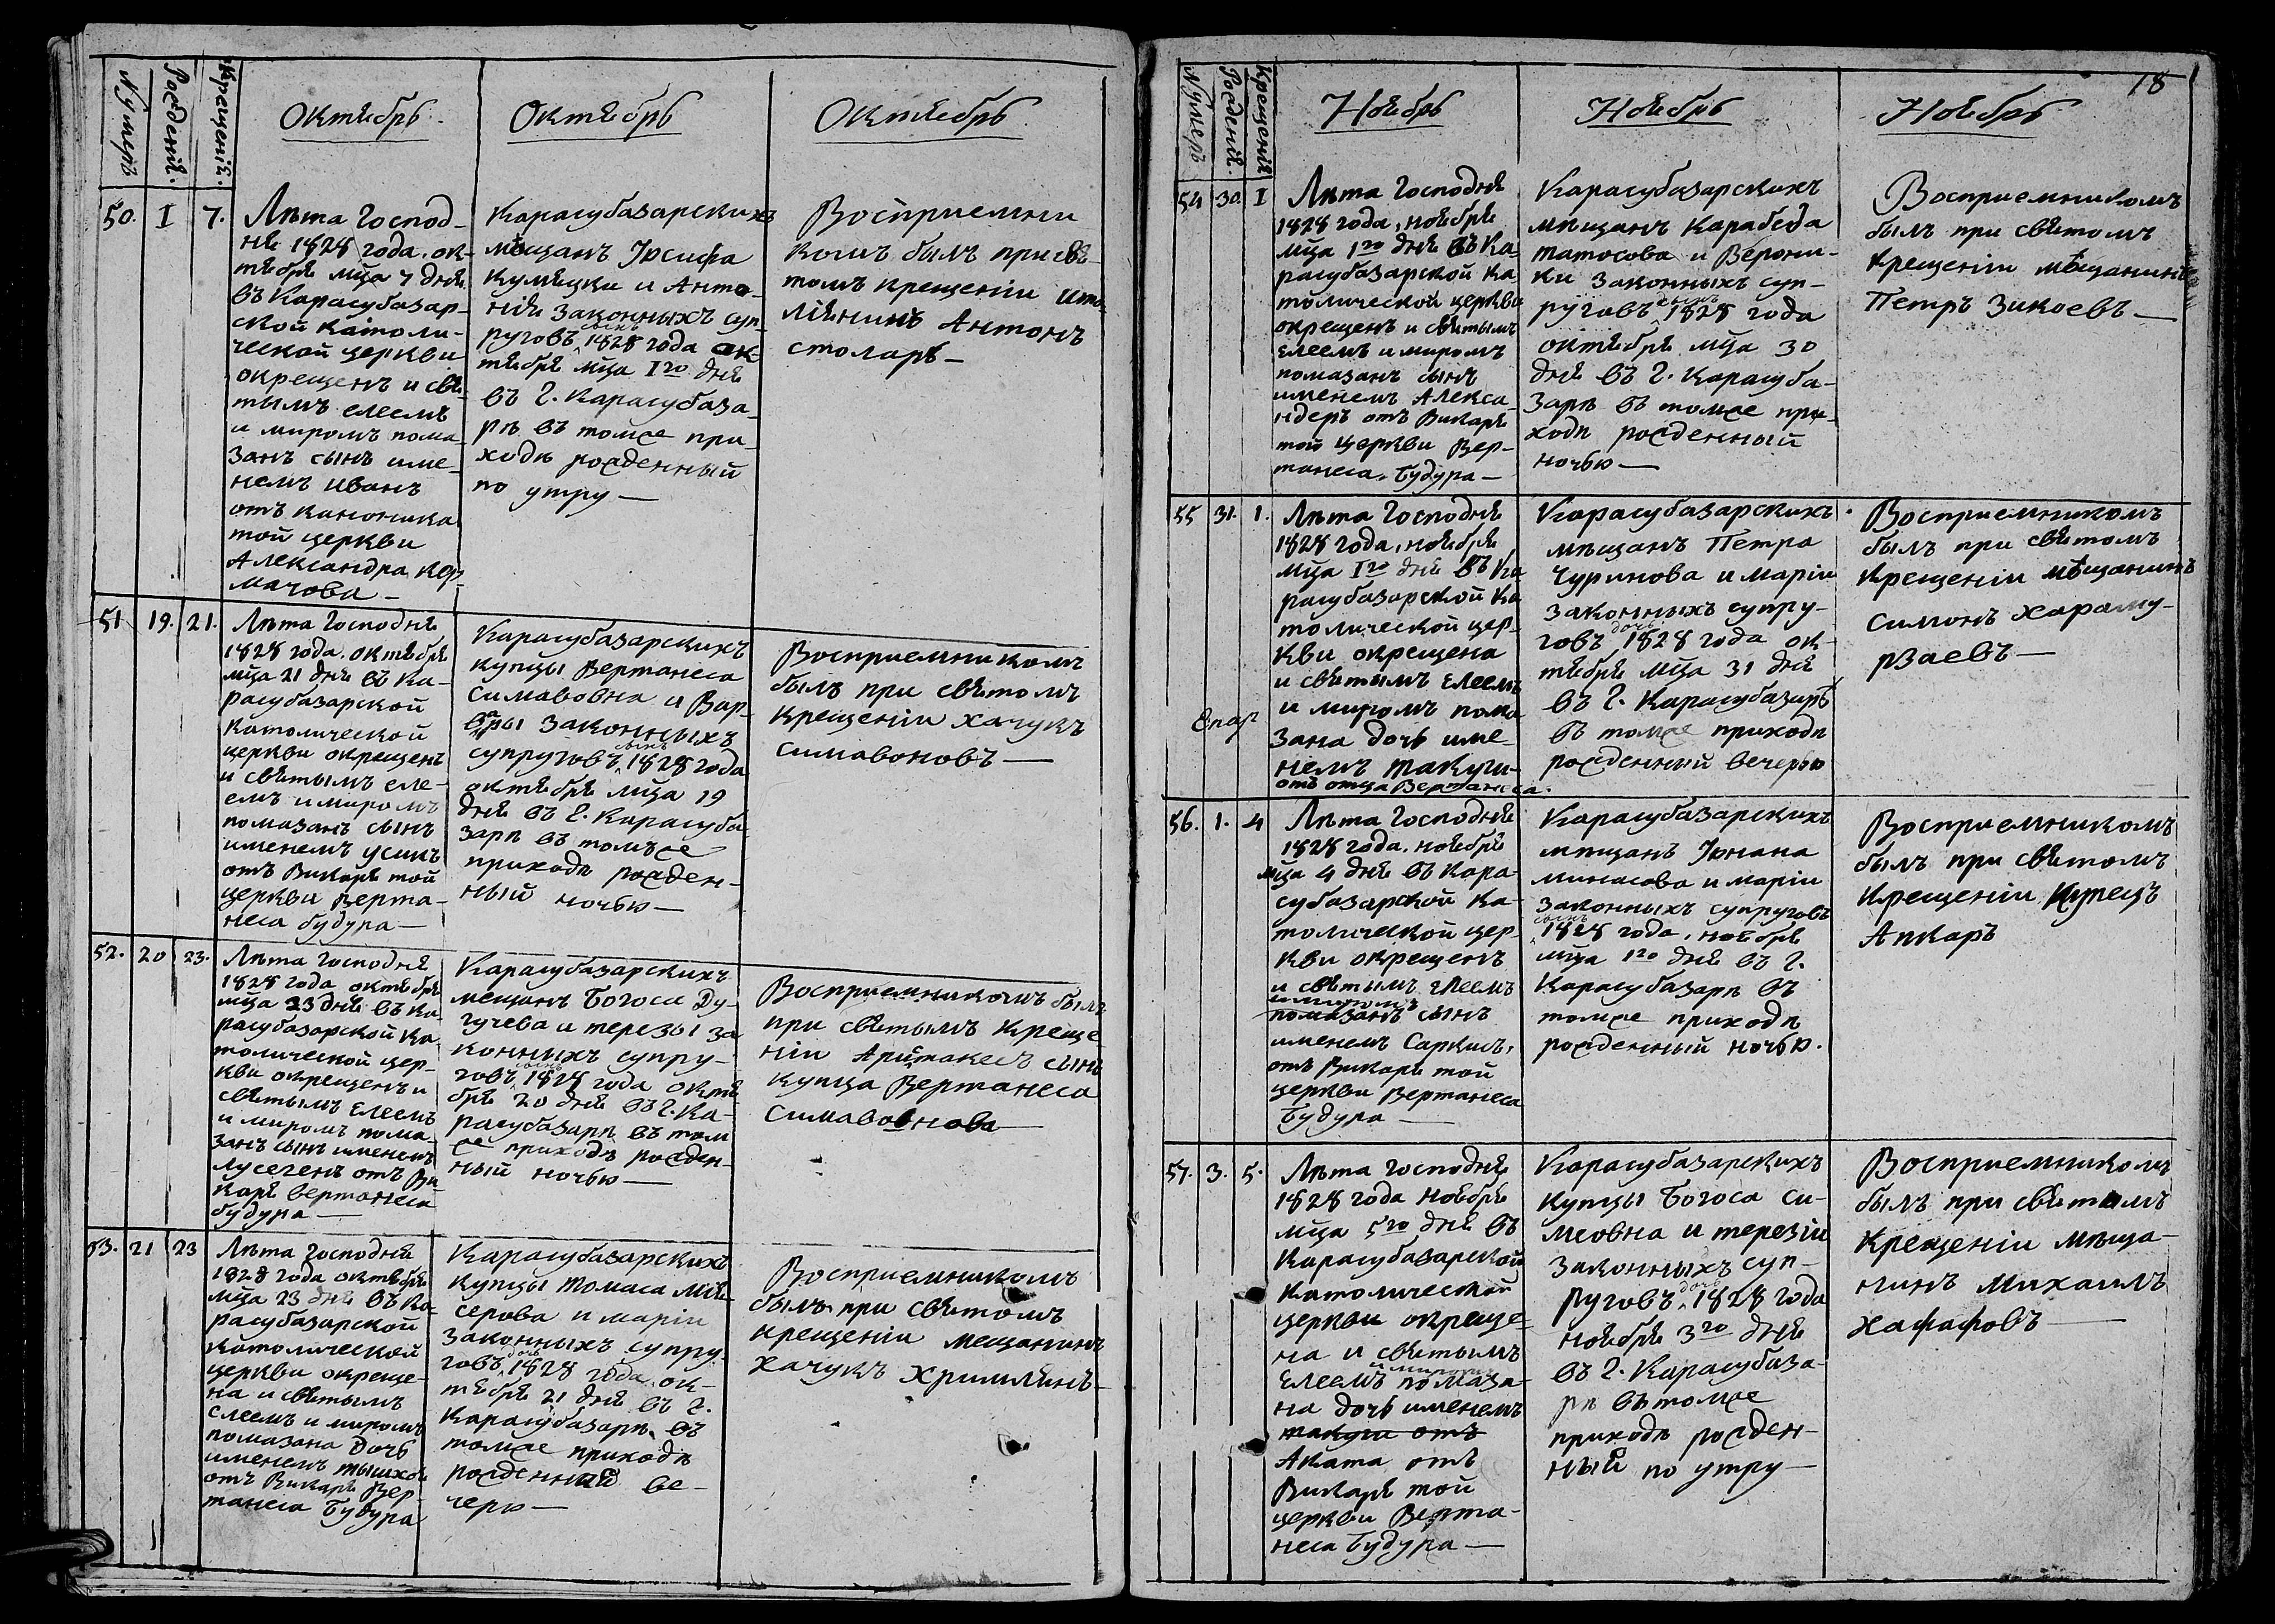 Нумеръ
Рожденія.
Крещенія.
Октябрь.
Октябрь
Октябрь.
50. I 7.
Лѣта Господ-
ня 1828 года, ок-
тября мѣца 7 дня
въ Карасубазар-
ской католи-
ческой церкви
окрещенъ и свя-
тымъ елеемъ
и миромъ пома-
занъ сынъ име-
немъ Иванъ
отъ каноника
той церкви
Александра
мачова —
Карасубазарскихъ
мѣщанъ Іосифа
и Анто-
ніи законныхъ суп-
руговъ сынъ 1828 года ок-
тября мѣца Iго дня
въ г. Карасубаза-
рѣ въ томже при-
ходѣ рожденный
по утру —
Восприемни
комъ былъ при свя-
томъ крещеніи ита-
ліянинъ Антонъ
столаръ —
51 19. 21.
Лѣта Господня
1828 года, октября
мѣца 21 дня въ Ка-
расубазарской
католической
церкви окрещенъ
и святымъ еле-
емъ и миромъ
помазанъ сынъ
именемъ Усикъ
отъ Викаря той
церкви Верта-
неса Будура —
Карасубазарскихъ
купцы Вертанеса
Симавовна и Вар-
вары законныхъ
супруговъ сынъ 1828 года
октября мѣца 19
дня въ г. Карасуба
зарѣ въ томъже
приходѣ рожден-
ный ночью —
Восприемникомъ
былъ при святомъ
крещеніи Хачукъ
Симавоновъ —
52. 20 23.
Лѣта Господня
1828 года октября
мѣца 23 дня въ Ка-
расубазарской Ка-
толической цер-
кви окрещенъ и
святымъ елеемъ
и миромъ пома-
занъ сынъ именемъ
Лусегенъ отъ Ви
каря Вертанеса
Будура —
Карасубазарскихъ
мещанъ Богоса Ду-
гучева и Терезы за
конныхъ супру-
говъ сынъ 1828 года октя
бря 20 дня въ г. Ка-
расубазарѣ въ том
же приходѣ рожден-
ный ночью —
Восприемникомъ былъ
при святымъ креще
ніи Аритакесъ сынъ
купца Вертанеса
Симавовнова —
53. 21 23
Лѣта Господня
1828 года октября
мѣца 23 дня въ Ка-
расубазарской
католической
церкви окреще-
на и святымъ
елеемъ и миромъ
помазана дочь
именемъ
отъ Викаря Вер-
танеса Будура
Карасубазарскихъ
купцы Томаса Мя-
серова и Маріи
законныхъ супру
говъ дочь 1828 года, ок-
тября 21 дня въ г.
Карасубазарѣ въ
томже приходѣ
рожденный ве-
черю —
Восприемникомъ
былъ при святомъ
крещеніи мещанинъ
Хачукъ
18
Нумеръ
Рожденія.
Крещенія
Ноябрь
Ноябрь
Ноябрь
54 30. I
Лѣта Господня
1828 года, ноября
мѣца 1го дня въ Ка-
расубазарской ка
толической церкви
окрещенъ и святымъ
елеемъ и миромъ
помазанъ сынъ
именемъ Алекса-
ндеръ отъ Викаря
той церкви Вер-
танеса Будура —
Карасубазарскихъ
мѣщанъ Карабеда
Татосова и Верони-
ки законныхъ суп-
руговъ сынъ 1828 года
октября мѣца 30
дня въ г. Карасуба-
зарѣ въ томже при-
ходѣ рожденный
ночью —
Восприемникомъ
былъ при святомъ
крещеніи мѣщанинъ
Петръ Зикоевъ —
55 31. 1.
Лѣта Господня
1828 года, ноября
мѣца Iго дня въ Ка
расубазарской ка
толической цер-
кви окрещена
и святымъ елеемъ
и миромъ пома
зана дочь име-
немъ Такуги
отъ отца Вертанеса.
Карасубазарскихъ
мѣщанъ Петра
Чуринова и Маріи
законныхъ супру-
говъ дочь 1828 года ок-
тября мѣца 31 дня
въ г. Карасубазарѣ
въ томже приходѣ
рожденный вечерью
Восприемникомъ
былъ при святомъ
крещеніи мѣщанинъ
Симонъ Хараму-
рзаевъ —
56. 1. 4
Лѣта Господня
1828 года, ноября
мѣца 4 дня въ Кара-
субазарской Ка-
толической цер-
кви окрещенъ
и святымъ елеемъ
и миромъ
помазанъ сынъ
именемъ Саркисъ,
отъ Викаря той
церкви Вертанеса
Будура —
Карасубазарскихъ
мѣщанъ Іоанна
Минасова и Маріи
законныхъ супруговъ
сынъ 1828 года, ноября
мѣца 1го дня въ г.
Карасубазарѣ въ
томже приходѣ
рожденный ночью.
Восприемникомъ
былъ при святомъ
крещеніи купецъ
Апкаръ
57. 3. 5.
Лѣта Господня
1828 года ноября
мѣца 5го дня въ
Карасубазарской
Католической
церкви окреще-
на и святымъ
елеемъ и миромъ помаза-
на дочь именемъ
такуги отъ
Аката отъ
Викаря той
церкви Верта-
неса Будура —
Карасубазарскихъ
купцы Богоса Си-
меовна и Терезіи
законныхъ суп-
руговъ дочь 1828 года
ноября 3го дня
въ г. Карасубаза-
рѣ въ томже
приходѣ рожден-
ный по утру —
Восприемникомъ
былъ при святомъ
крещеніи мѣща-
нинъ Михаилъ
Хафафовъ —